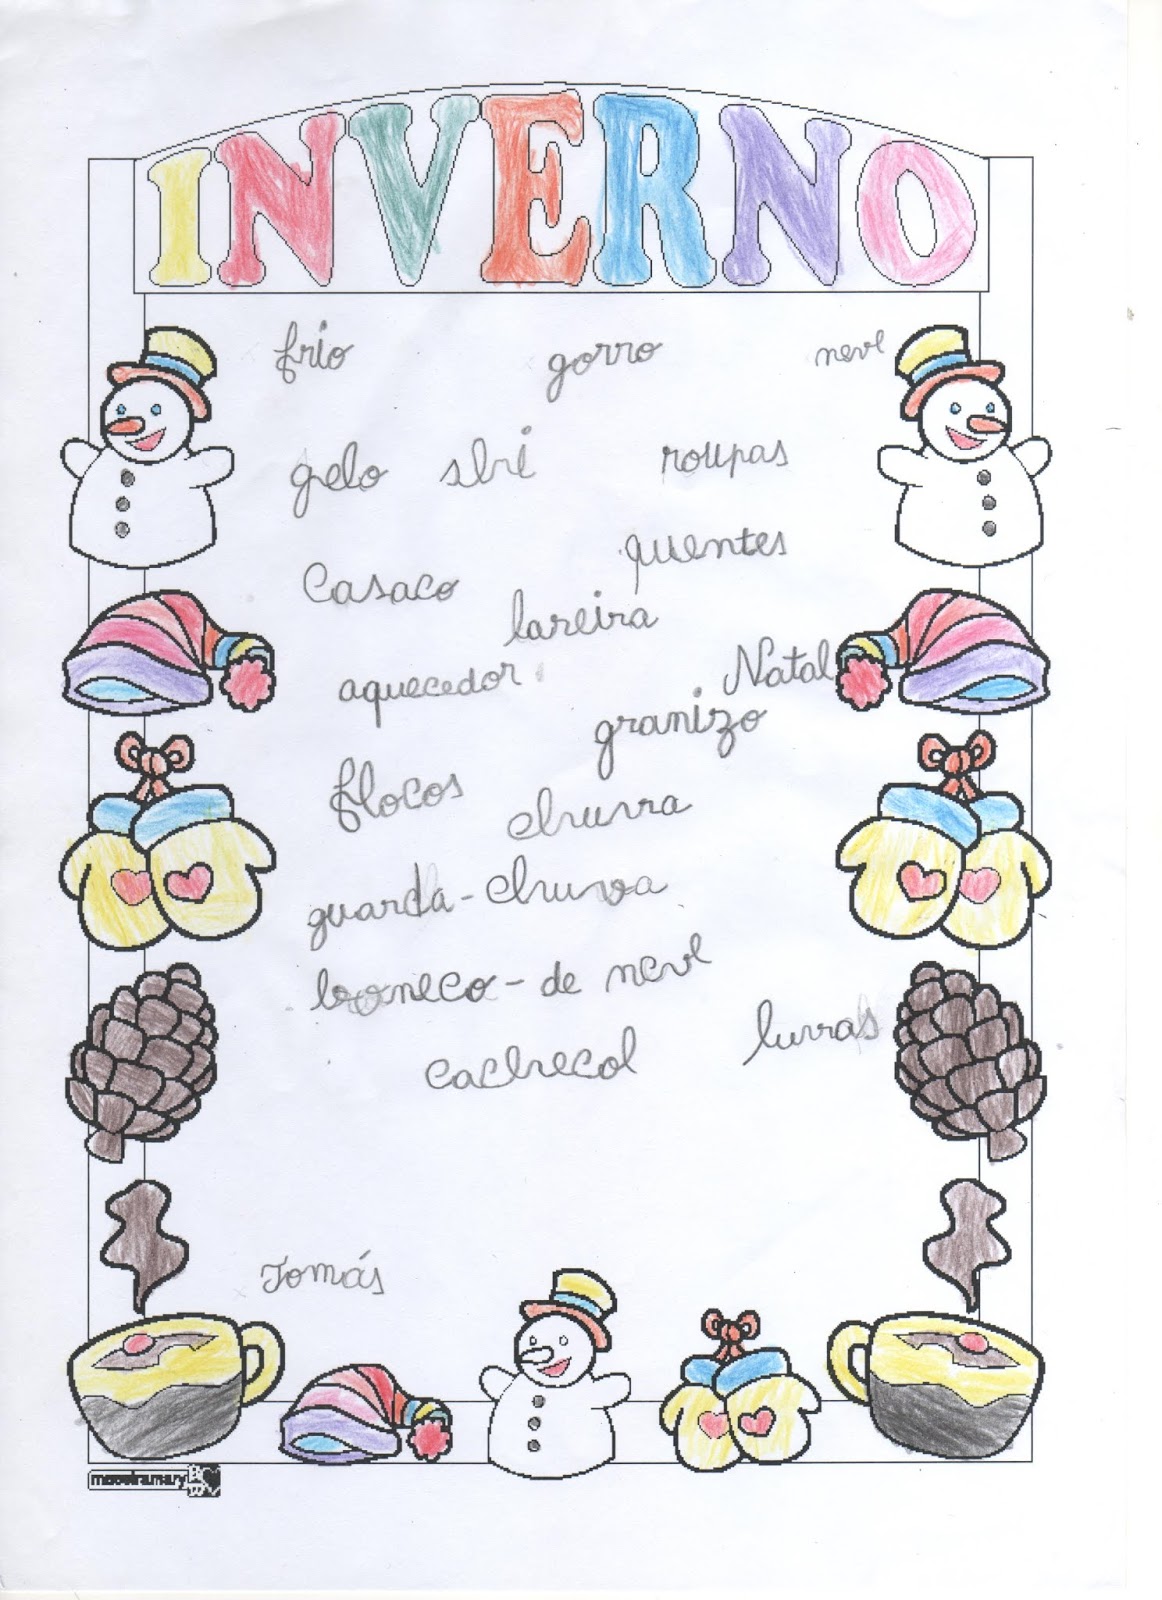 INVERNO
frio gorro neve
gelo ski roupas
quentes
casaco
lareira
aquecedor Natal
granizo
flocos
chuva
guarda-chuva
boneco-de neve
luvas
cachecol
Tomás